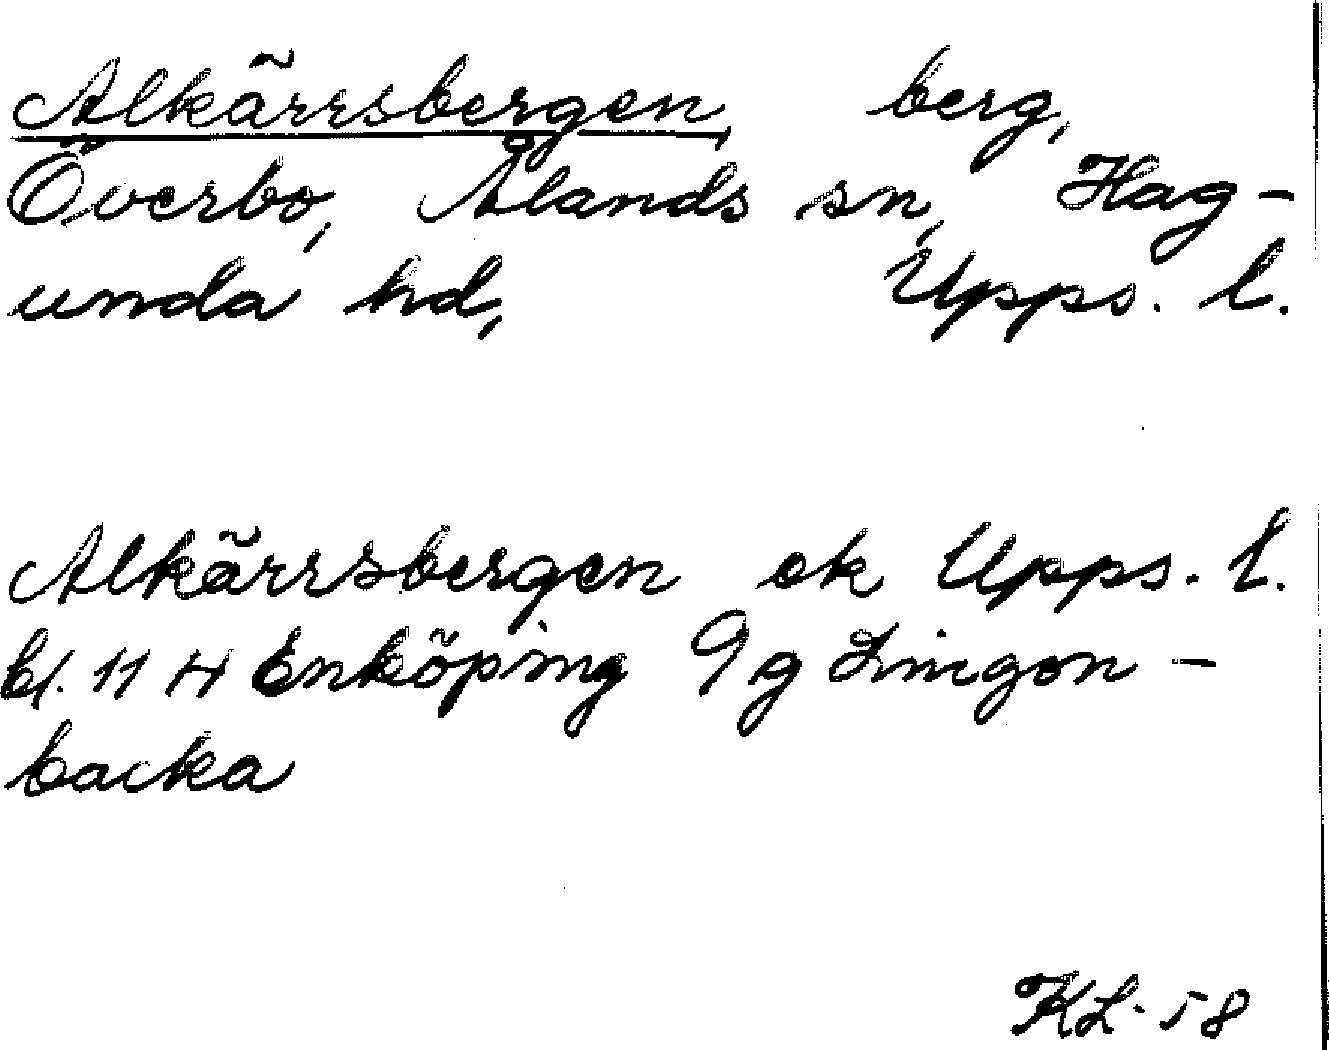 Alkärrsbergen, berg,
Överbo, Ålands sn, Hag-
unda hd, Upps. l.
Alkärrsbergen ek Upps. l.
bl. 11 H Enköping 9 g Lingon-
backa
KL-58